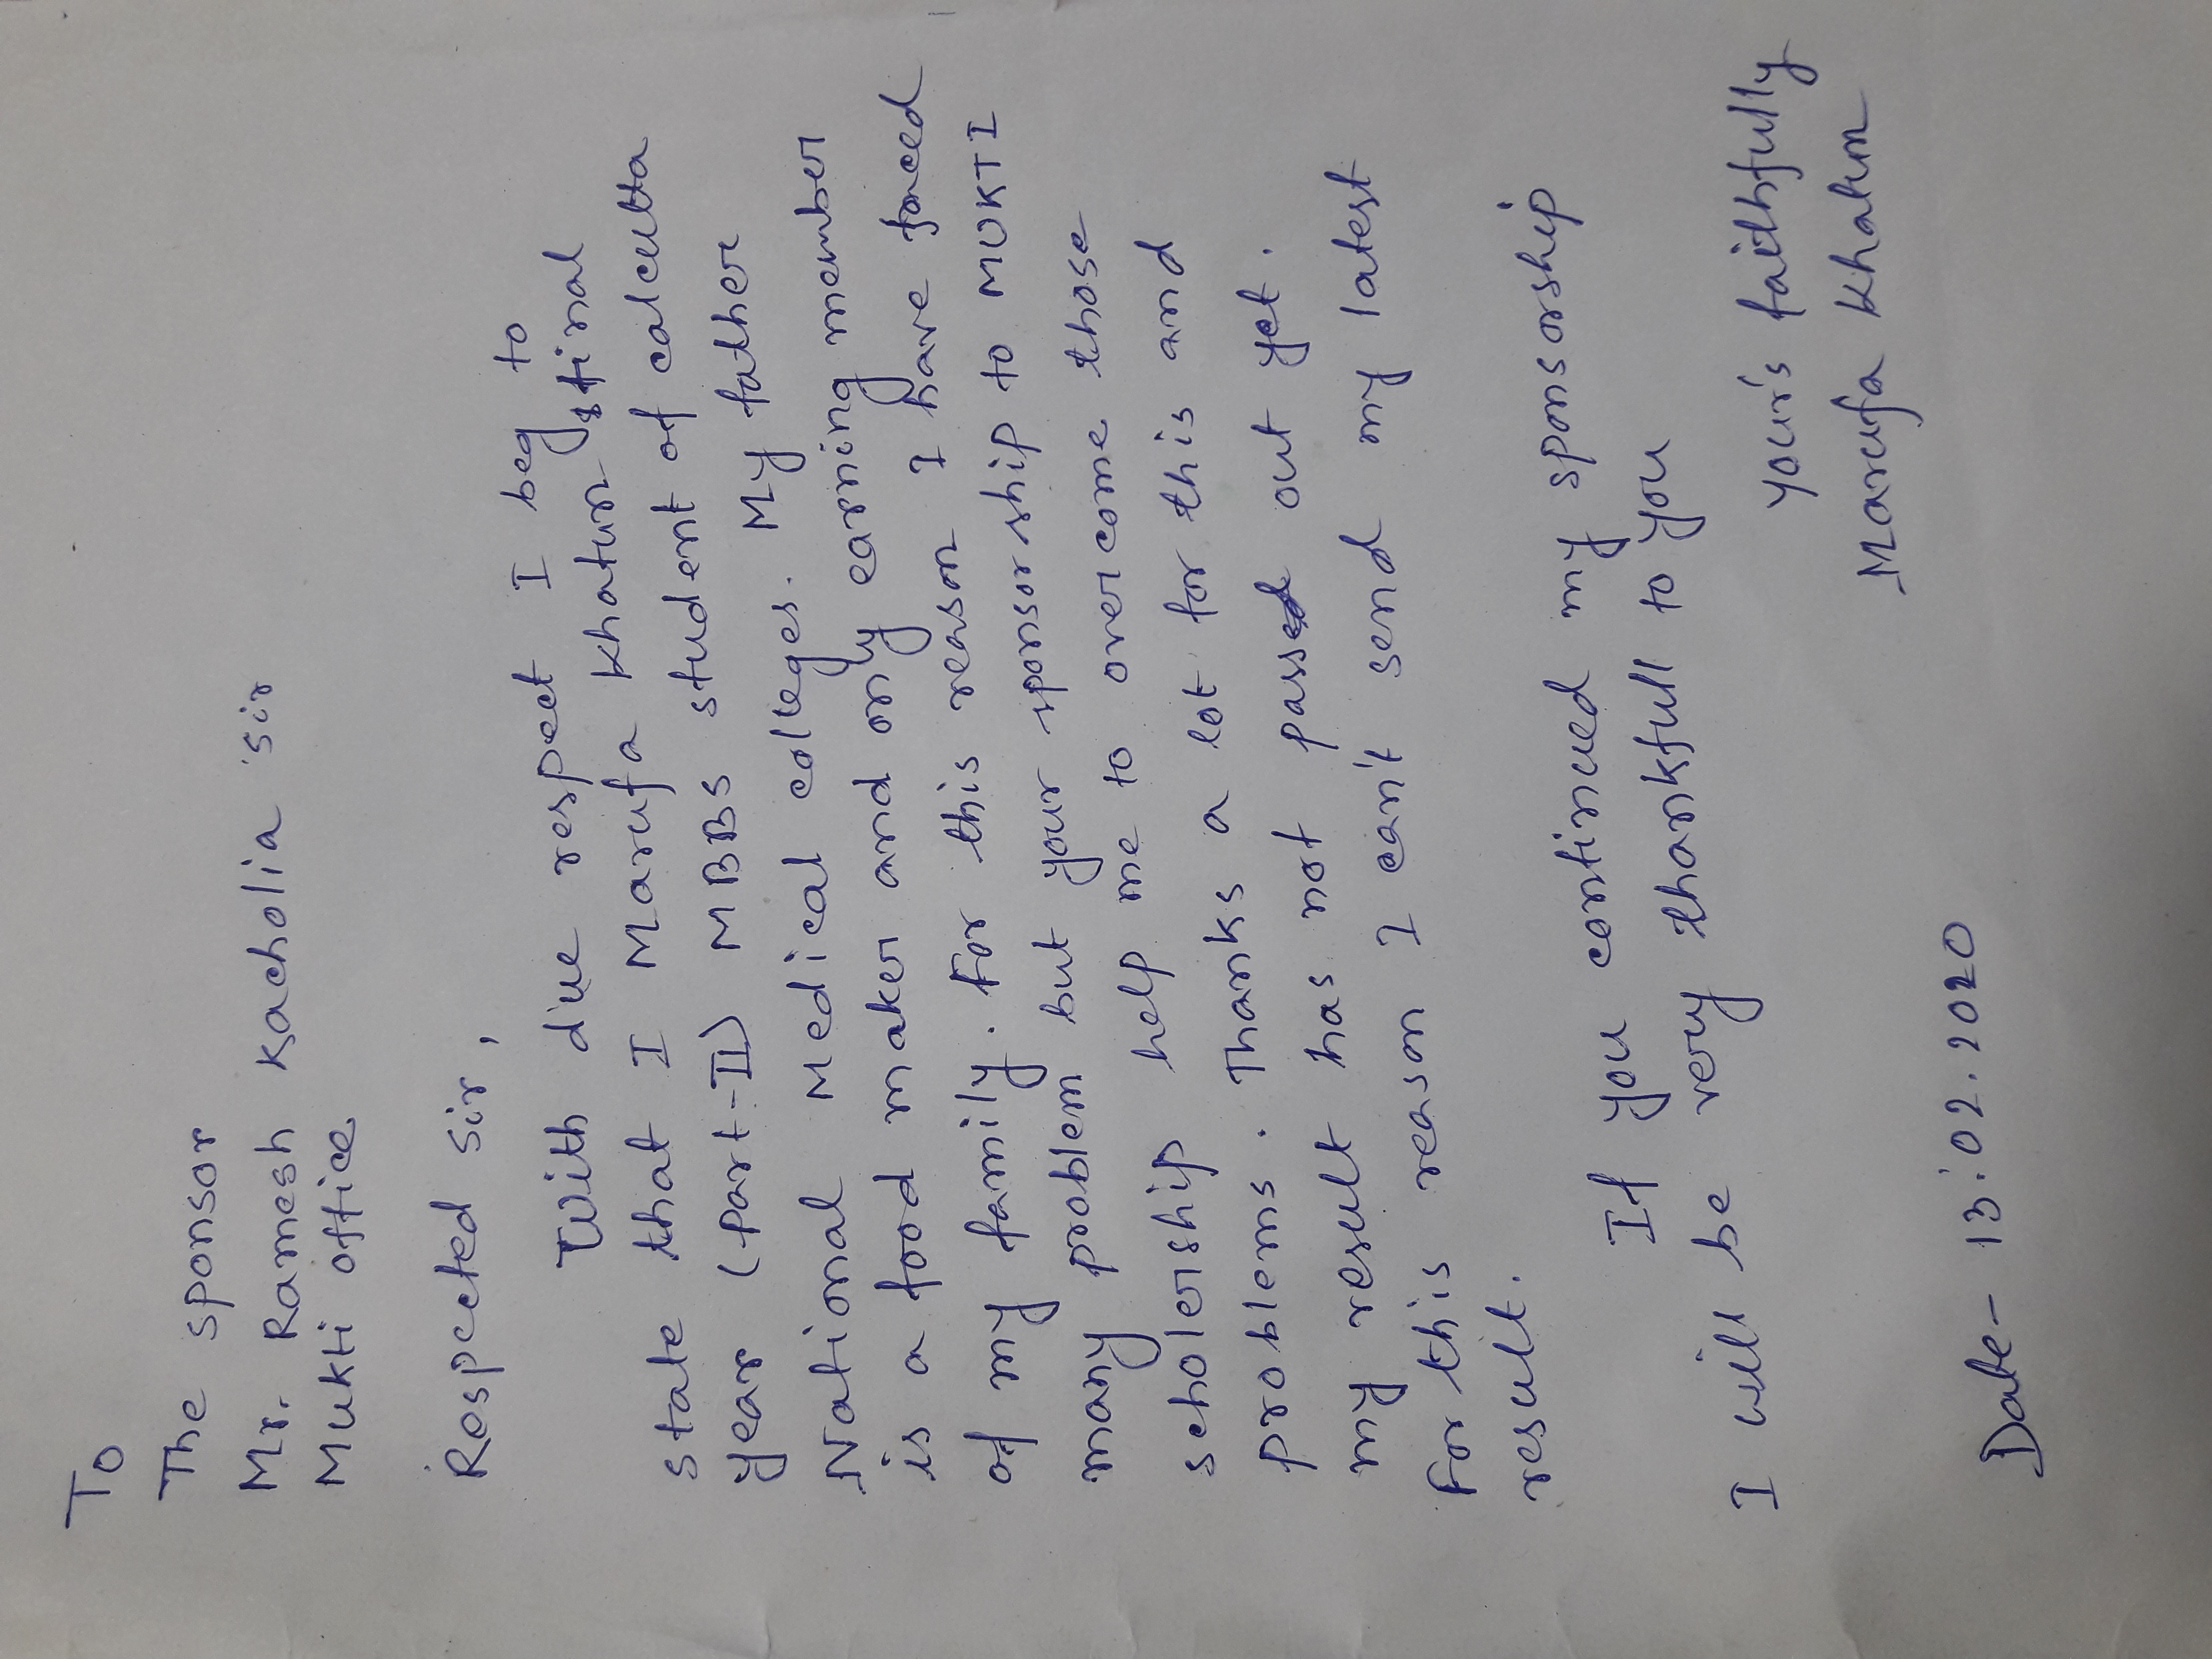 To
The sponsor
Mr. Ramesh Kacholia sir
Mukti office
Respected sir,
With due respect I beg to
state that I Marufa Khatun final
year (part-II) MBBS student of calcutta
National Medical colleges. My father
is a food maker and only earning member
of my family. For this reason I have faced
many problem but your sponsorship to MUKTI
scholership help me to overcome those
problems. Thanks a lot for this and
my result has not passed out yet.
For this reason I can't send my latest
result.
If you continued my sponsorship
I will be very thankfull to you
your's faithfully
Marufa Khatun
Date- 13.02.2020